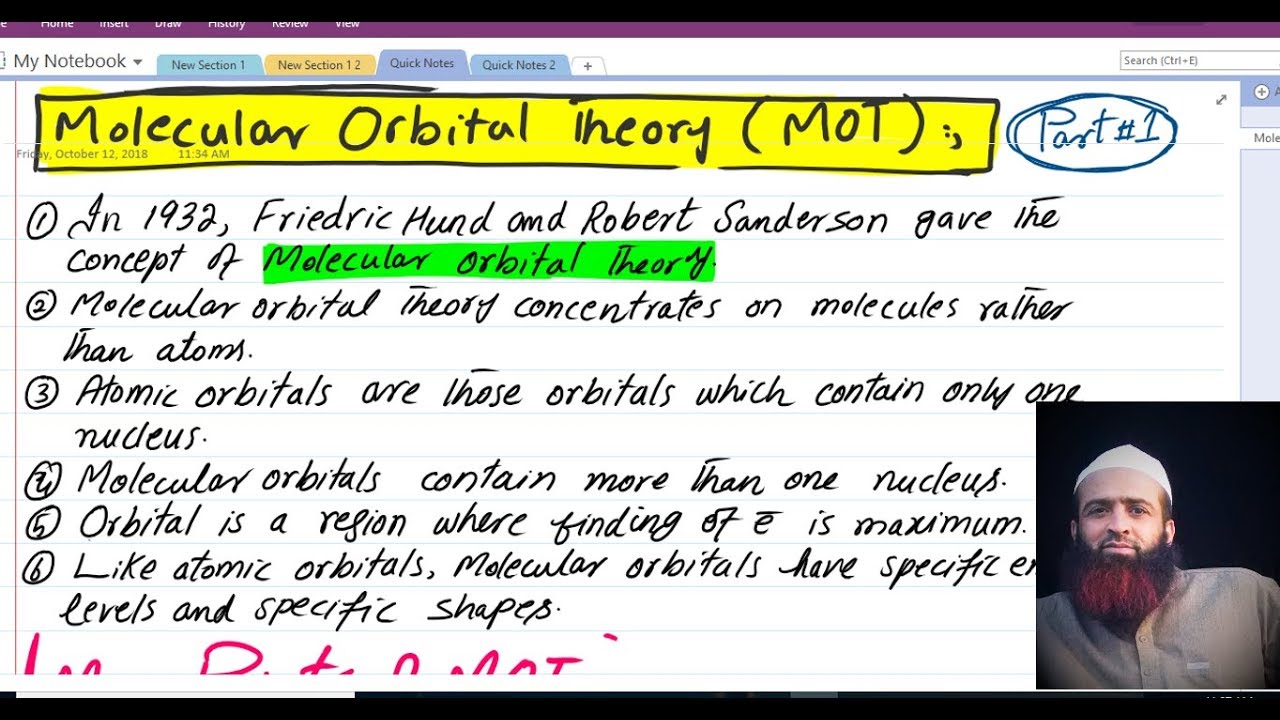 Home Insert Draw History Review View
My Notebook New Section 1 New Section 1 2 Quick Notes Quick Notes 2 + Search (Ctrl+E)
Molecular Orbital Theory (MOT):,
Part #1
Mole
Friday, October 12, 2018 11:34 AM
① In 1932, Friedric Hund and Robert Sanderson gave the
concept of Molecular orbital Theory.
② Molecular orbital Theory concentrates on molecules rather
than atoms.
③ Atomic orbitals are those orbitals which contain only one
nucleus.
④ Molecular orbitals contain more than one nucleus.
⑤ Orbital is a region where finding of e̅ is maximum.
⑥ Like atomic orbitals, Molecular orbitals have specific
levels and specific shapes.
MOT